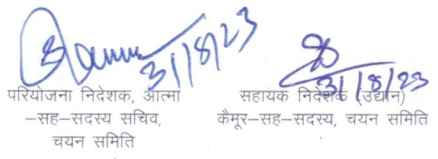 31/8/23
परियोजना निदेशक, आत्मा
-सह-सदस्य सचिव,
चयन समिति
31/8/23
सहायक निदेशक (उद्यान)
कैमूर-सह-सदस्य, चयन समिति